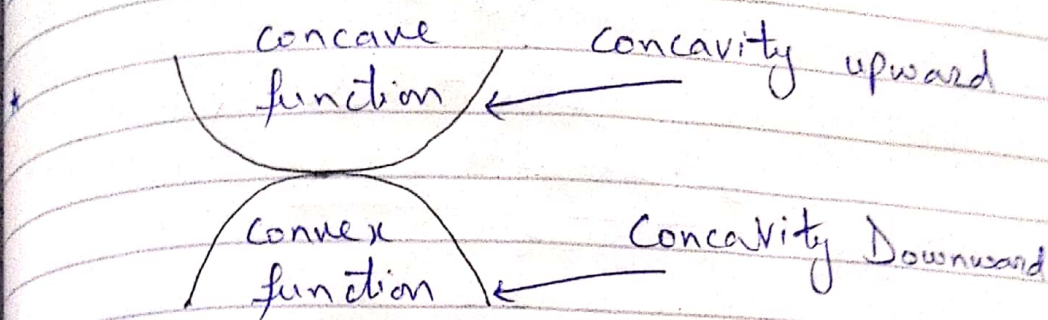 concave
function
Concavity upward
Convex
function
Concavity Downward